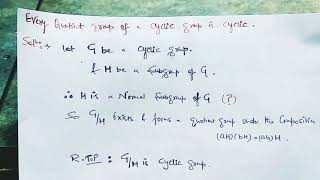 Every Quotient group of a cyclic group is cyclic.
Solun :→ Let G be a cyclic group.
& H be a Subgroup of G.
∴ H is a Normal Subgroup of G (?)
So G/H Exists & forms a quotient group under the Composition
(aH)(bH) = (ab)H.
R.T.P : G/H is cyclic group.